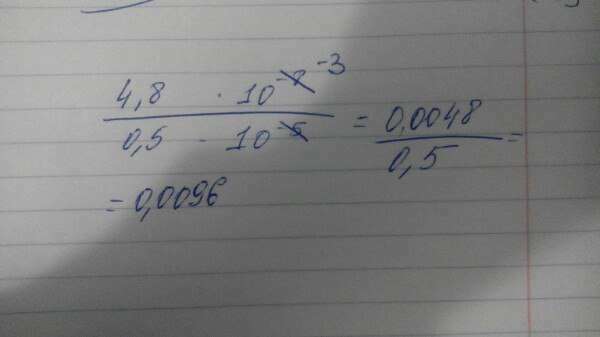 4,8 · 10^-8 -3
0,5 · 10^-5
= 0,0048
0,5
=
= 0,0096